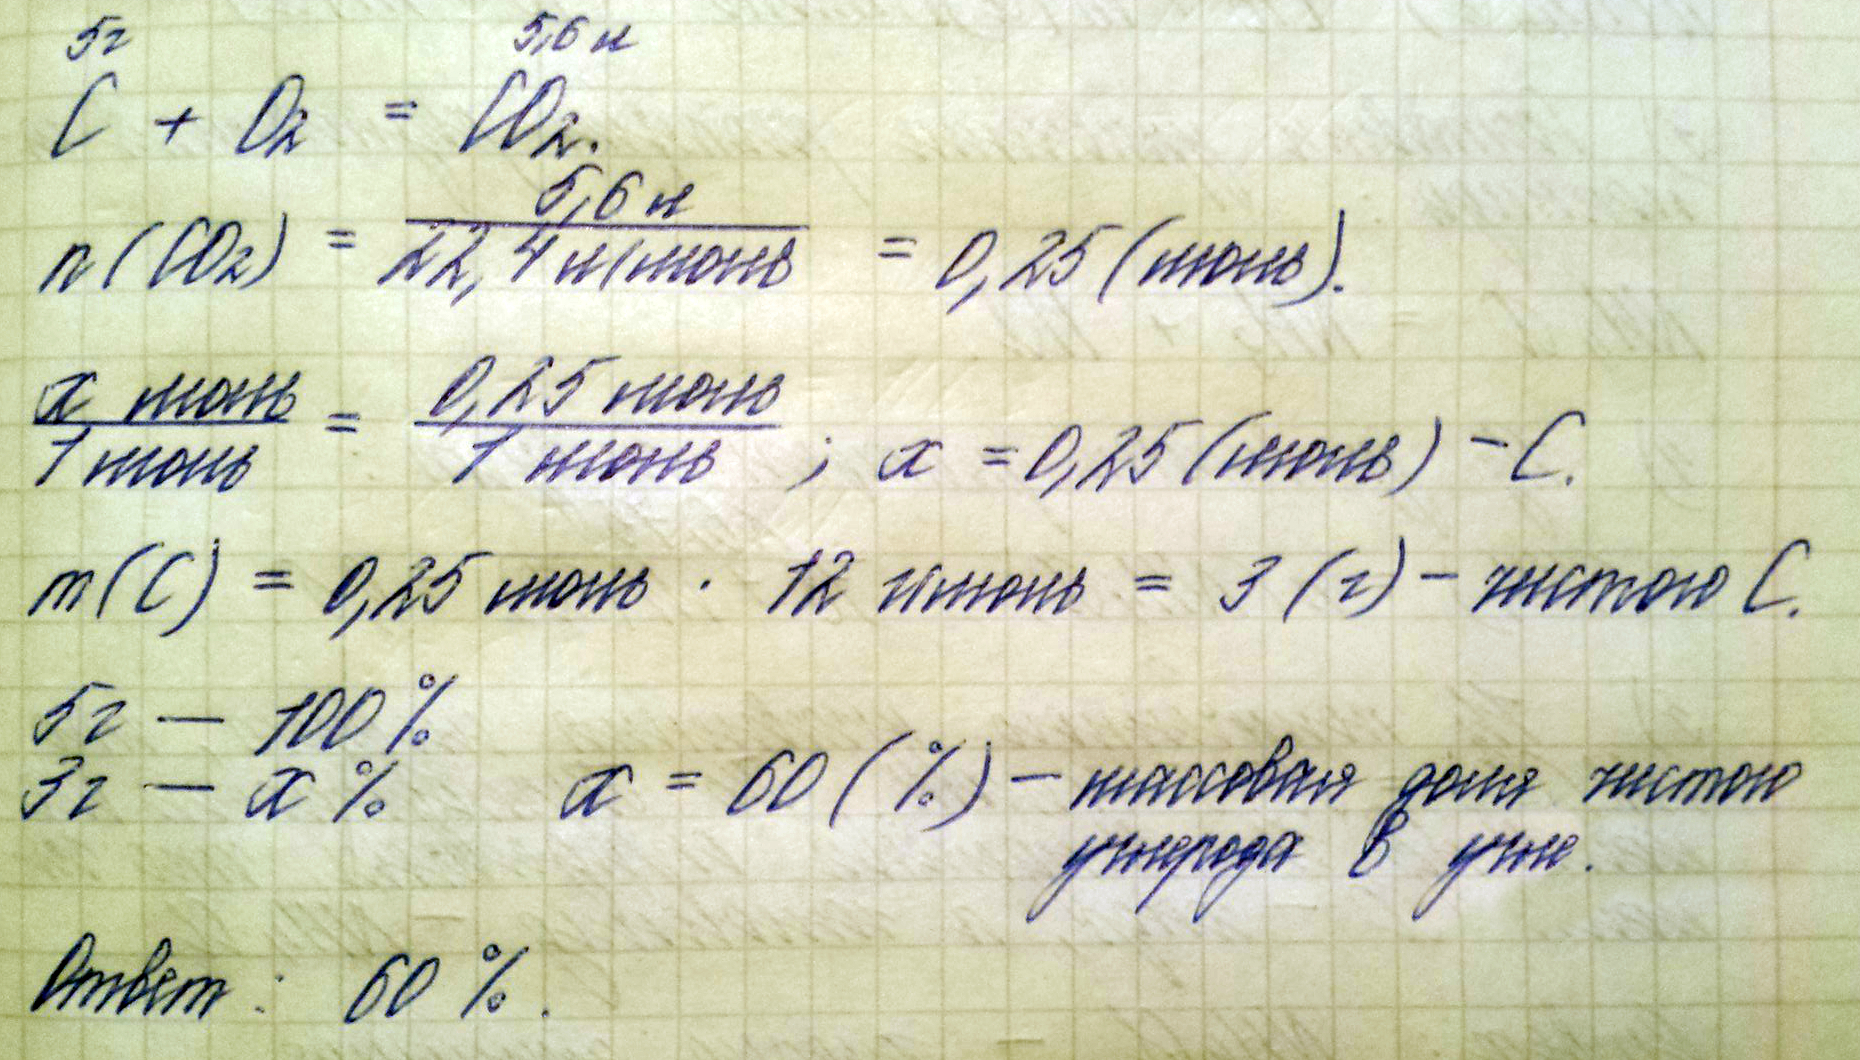 5г 5,6 л
C + O₂ = CO₂.
n(CO₂) = 5,6 л / 22,4 л/моль = 0,25 (моль).
x моль / 1 моль = 0,25 моль / 1 моль ; x = 0,25 (моль) - C.
m(C) = 0,25 моль · 12 г/моль = 3 (г) - чистого C.
5г — 100%
3г — x% x = 60 (%) - массовая доля чистого
углерода в угле.
Ответ: 60 %.